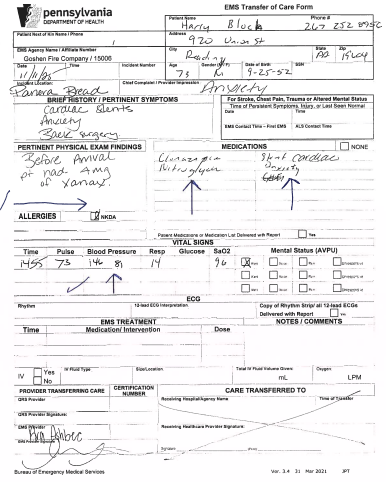 pennsylvania
DEPARTMENT OF HEALTH
EMS Transfer of Care Form
Patient Name
Harry Block
Phone #
267 252
Patient Next of Kin Name / Phone
Address
920 Union St
EMS Agency Name / Affiliate Number
Goshen Fire Company / 15006
City
Reading
State
PA
Zip
Date
11/11/25
Time
Incident Number
Age
73
Gender (M/F)
M
Date of Birth
9-25-52
SSN
Incident Location:
Panera Bread
Chief Complaint / Provider Impression
Anxiety
BRIEF HISTORY / PERTINENT SYMPTOMS
Cardiac Stents
Anxiety
Back surgery
For Stroke, Chest Pain, Trauma or Altered Mental Status
Time of Persistent Symptoms, Injury, or Last Seen Normal
Date
Time
EMS Contact Time – First EMS
ALS Contact Time
PERTINENT PHYSICAL EXAM FINDINGS
Before Arrival
pt had 4mg
of Xanax.
MEDICATIONS
NONE
Clonazepam
Nitroglycerin
Stent cardiac
Anxiety
ALLERGIES
NKDA
Patient Medications or Medication List Delivered with Report
Yes
VITAL SIGNS
Time
Pulse
Blood Pressure
Resp
Glucose
SaO2
Mental Status (AVPU)
1455
73
146
81
14
96
ECG
Rhythm
12-lead ECG Interpretation
Copy of Rhythm Strip/ all 12-lead ECGs
Delivered with Report
Yes
EMS TREATMENT
NOTES / COMMENTS
Time
Medication/ Intervention
Dose
IV
Yes
No
IV Fluid Type
Size/Location
Total IV Fluid Volume Given:
mL
Oxygen
LPM
PROVIDER TRANSFERRING CARE
CERTIFICATION
NUMBER
CARE TRANSFERRED TO
QRS Provider
Receiving Hospital/Agency Name
Time of Transfer
QRS Provider Signature:
EMS Provider
Receiving Healthcare Provider Signature:
EMS Provider Signature
Signature
Bureau of Emergency Medical Services
Ver. 3.4 31 Mar 2021 JPT